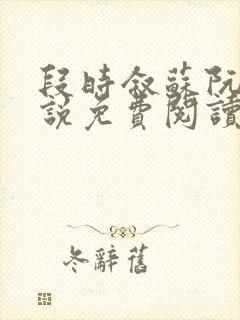 段時敘蘇阮
說免費閱讀
冬辭舊